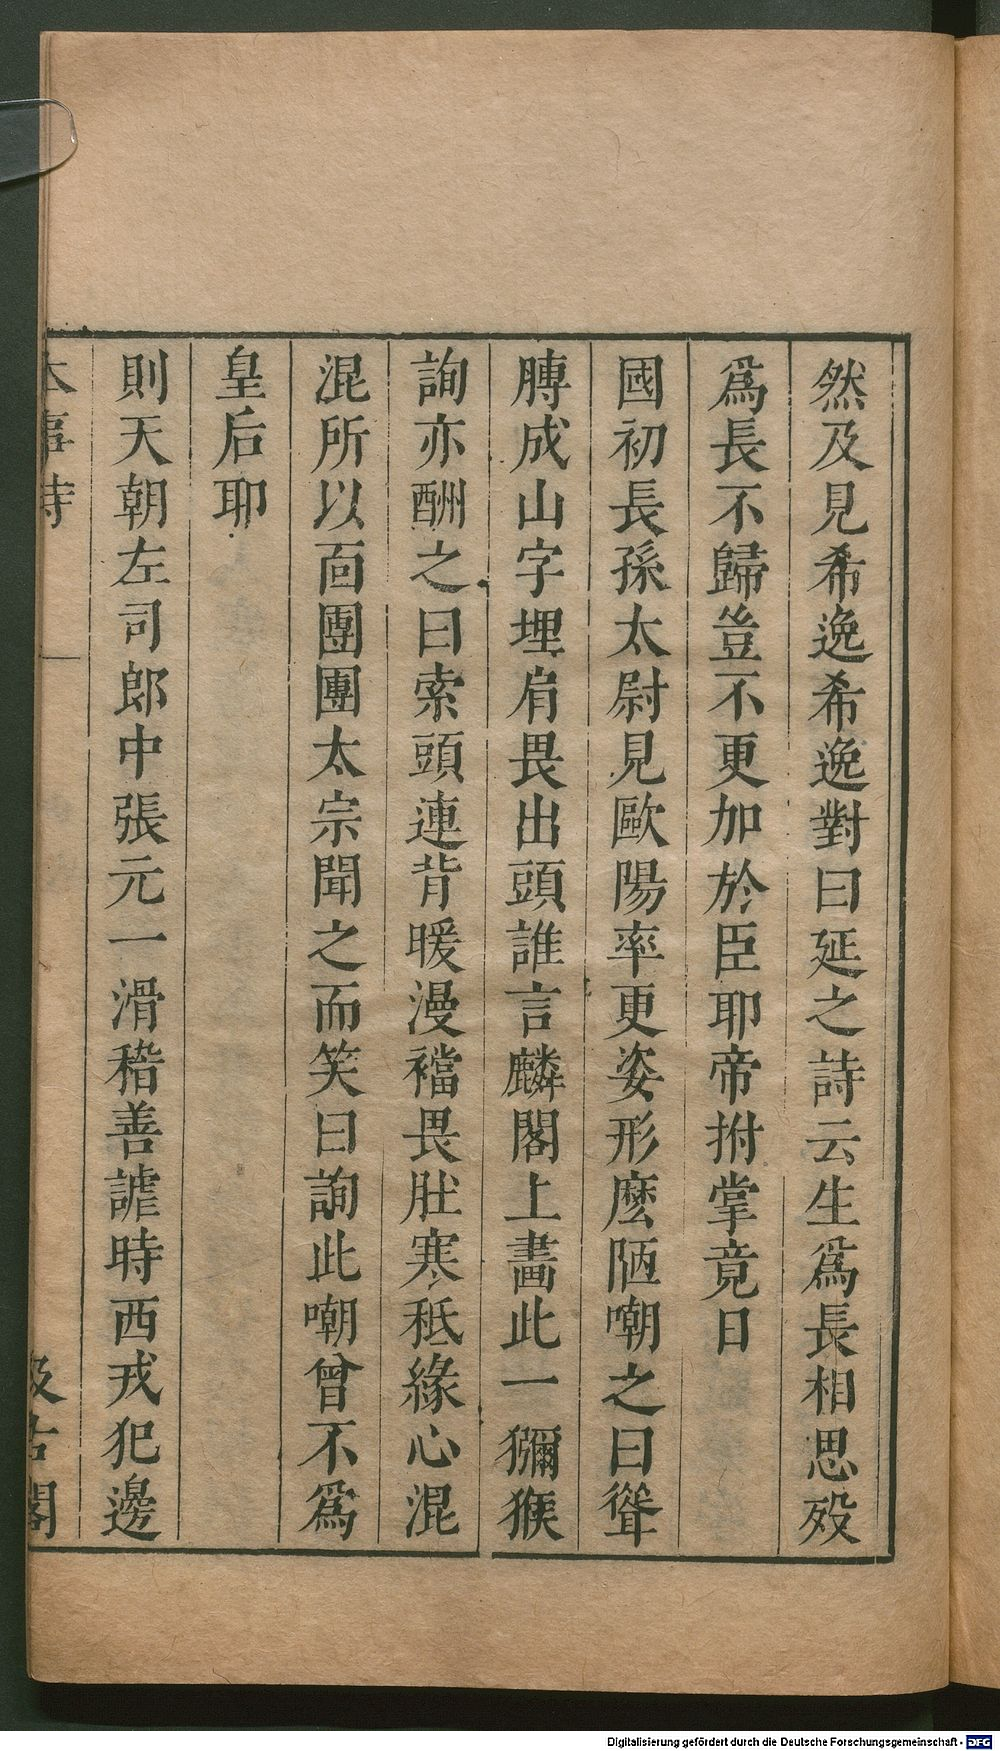 然及見希逸希逸對曰延之詩云生爲長相思歿
爲長不歸豈不更加於臣耶帝拊掌竟日
國初長孫太尉見歐陽率更姿形麽陋嘲之曰聳
膊成山字埋肩畏出頭誰言麟閣上畫此一獼猴
詢亦酬之曰索頭連背暖漫襠畏肚寒秪緣心混
混所以面團團太宗聞之而笑曰詢此嘲曾不爲
皇后耶
則天朝左司郎中張元一滑稽善謔時西戎犯邊
本事詩
汲古閣
Digitalisierung gefördert durch die Deutsche Forschungsgemeinschaft - DFG